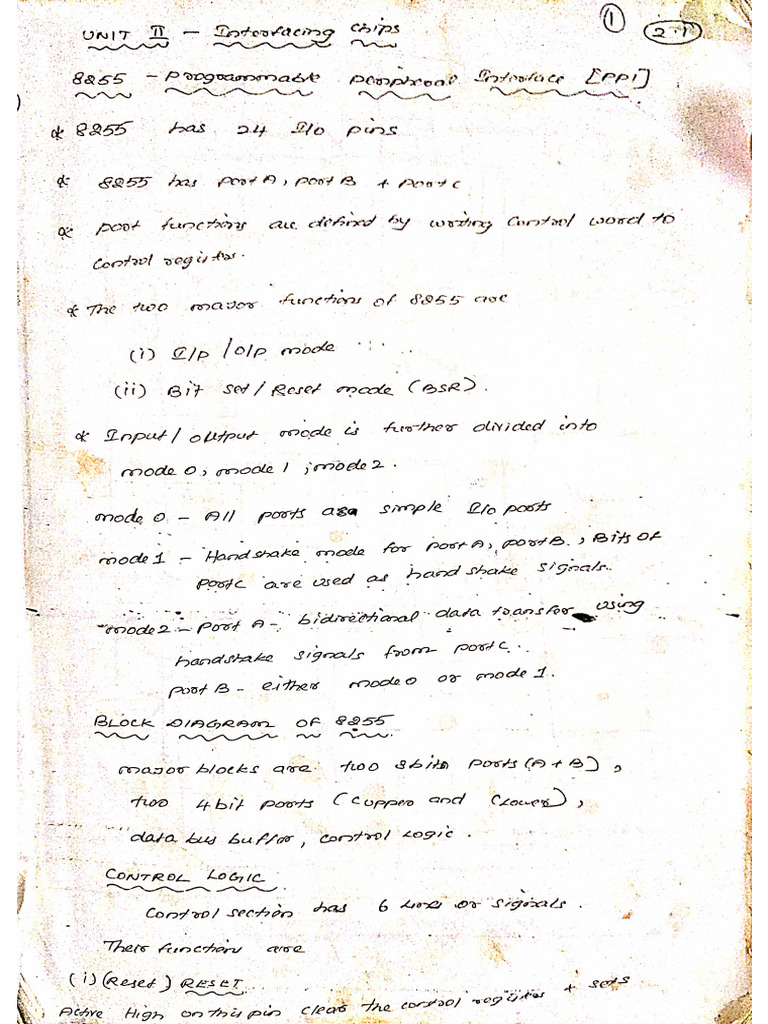 1 2.1
UNIT II - Interfacing chips
8255 - Programmable peripheral Interface [PPI]
* 8255 has 24 I/o pins
* 8255 has port A, port B + port C
* port functions are defined by writing control word to
control register.
* The two major functions of 8255 are
(i) I/p / O/p mode
(ii) Bit set / Reset mode (BSR).
* Input / output mode is further divided into
mode 0, mode 1, mode 2.
mode 0 - All ports as simple I/o ports
mode 1 - Handshake mode for port A, port B, Bits of
port C are used as handshake signals.
mode 2 - Port A - bidirectional data transfer using
handshake signals from port C.
port B - either mode 0 or mode 1.
BLOCK DIAGRAM OF 8255
major blocks are two 8 bits ports (A + B),
two 4 bit ports (Cupper and Clower),
data bus buffer, control logic.
CONTROL LOGIC
control section has 6 lines or signals.
Their function are
(i) (Reset) RESET
Active High on this pin clear the control register + sets